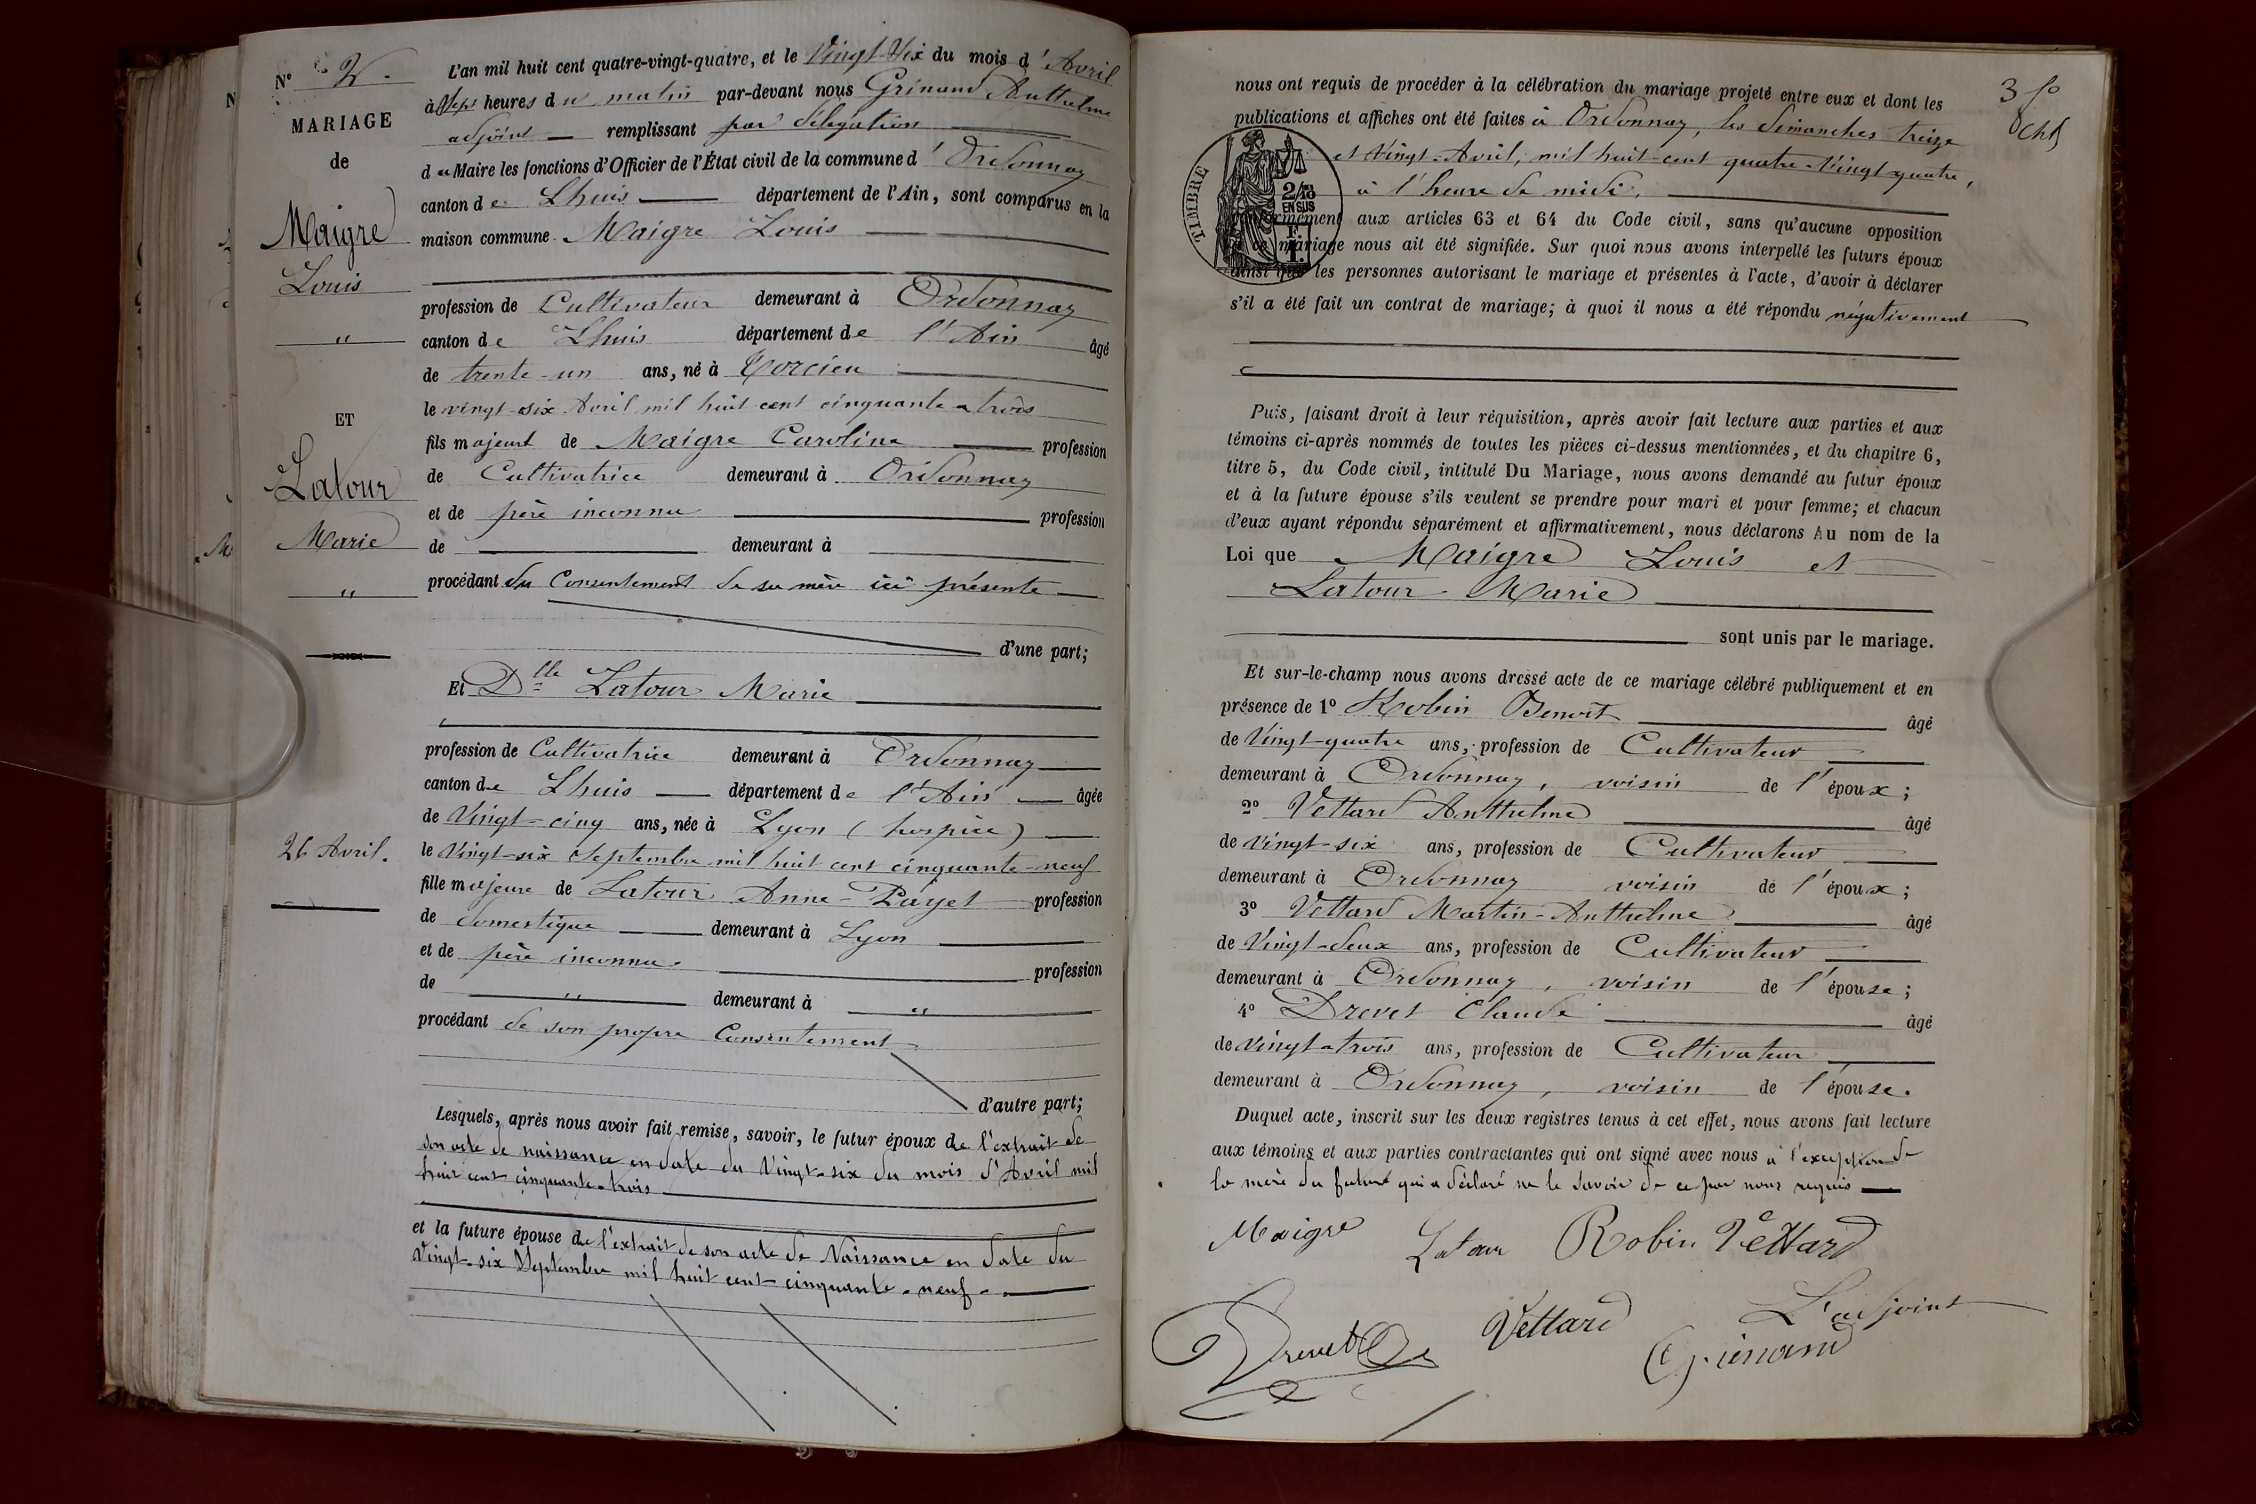 N° 2.
MARIAGE
de
Maigre
Louis
"
ET
Latour
Marie
"
26 Avril.
L'an mil huit cent quatre-vingt-quatre, et le Vingt-Six du mois d'Avril
à Sept heures du matin par-devant nous Grinand Anthelme
adjoint remplissant par délégation
du Maire les fonctions d'Officier de l'État civil de la commune d'Ordonnaz
canton de Lhuis département de l'Ain, sont comparus en la
maison commune Maigre Louis
profession de Cultivateur demeurant à Ordonnaz
canton de Lhuis département de l'Ain âgé
de trente-un ans, né à Torcieu
le vingt-six Avril mil huit cent cinquante-trois
fils majeur de Maigre Caroline profession
de Cultivatrice demeurant à Ordonnaz
et de père inconnu profession
de demeurant à
procédant du Consentement de sa mère ici présente
d'une part;
Et Dlle Latour Marie
profession de Cultivatrice demeurant à Ordonnaz
canton de Lhuis département de l'Ain âgée
de Vingt-cinq ans, née à Lyon (hospice)
le Vingt-six Septembre mil huit cent cinquante-neuf
fille majeure de Latour Anne-Payet profession
de domestique demeurant à Lyon
et de père inconnu. profession
de " demeurant à "
procédant de son propre Consentement
d'autre part;
Lesquels, après nous avoir fait remise, savoir, le futur époux de l'extrait de
son acte de naissance en date du Vingt-six du mois d'Avril mil
huit cent cinquante-trois
et la future épouse de l'extrait de son acte de Naissance en date du
Vingt-six Septembre mil huit cent cinquante-neuf.
3 fo
nous ont requis de procéder à la célébration du mariage projeté entre eux et dont les
publications et affiches ont été faites à Ordonnaz, les dimanches treize
et Vingt-Avril, mil huit-cent quatre-Vingt-quatre,
à l'heure de midi,
TIMBRE
2/10
EN SUS
conformément aux articles 63 et 64 du Code civil, sans qu'aucune opposition
à ce mariage nous ait été signifiée. Sur quoi nous avons interpellé les futurs époux
ainsi que les personnes autorisant le mariage et présentes à l'acte, d'avoir à déclarer
s'il a été fait un contrat de mariage; à quoi il nous a été répondu négativement
Puis, faisant droit à leur réquisition, après avoir fait lecture aux parties et aux
témoins ci-après nommés de toutes les pièces ci-dessus mentionnées, et du chapitre 6,
titre 5, du Code civil, intitulé Du Mariage, nous avons demandé au futur époux
et à la future épouse s'ils veulent se prendre pour mari et pour femme; et chacun
d'eux ayant répondu séparément et affirmativement, nous déclarons Au nom de la
Loi que Maigre Louis et
Latour Marie
sont unis par le mariage.
Et sur-le-champ nous avons dressé acte de ce mariage célébré publiquement et en
présence de 1° Robin Benoit âgé
de Vingt-quatre ans, profession de Cultivateur
demeurant à Ordonnaz, voisin de l'époux;
2° Vettard Anthelme âgé
de Vingt-six ans, profession de Cultivateur
demeurant à Ordonnaz voisin de l'époux;
3° Vettard Martin-Anthelme âgé
de Vingt-deux ans, profession de Cultivateur
demeurant à Ordonnaz, voisin de l'épouse;
4° Drevet Claude âgé
de Vingt-trois ans, profession de Cultivateur
demeurant à Ordonnaz, voisin de l'épouse.
Duquel acte, inscrit sur les deux registres tenus à cet effet, nous avons fait lecture
aux témoins et aux parties contractantes qui ont signé avec nous à l'exception de
la mère du futur qui a déclaré ne le savoir de ce par nous requis
Maigre Latour Robin Vettard
L'adjoint
Drevet Vettard Grinand